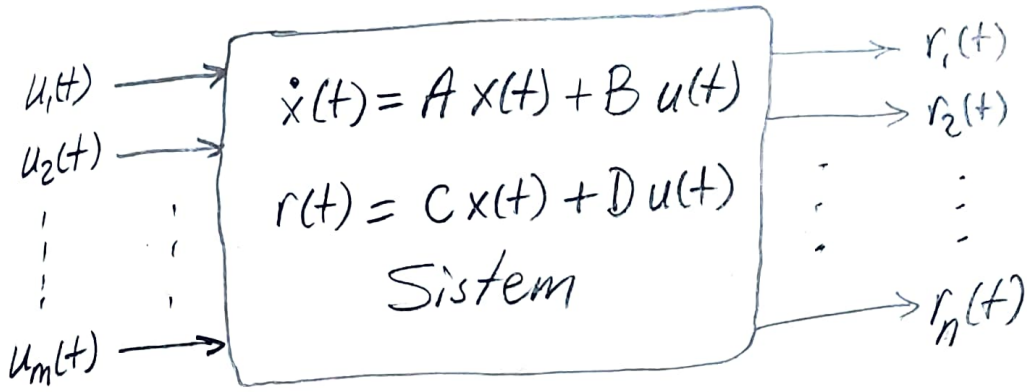 u₁(t)
u₂(t)
uₘ(t)
ẋ(t) = A x(t) + B u(t)
r(t) = C x(t) + D u(t)
Sistem
r₁(t)
r₂(t)
rₙ(t)